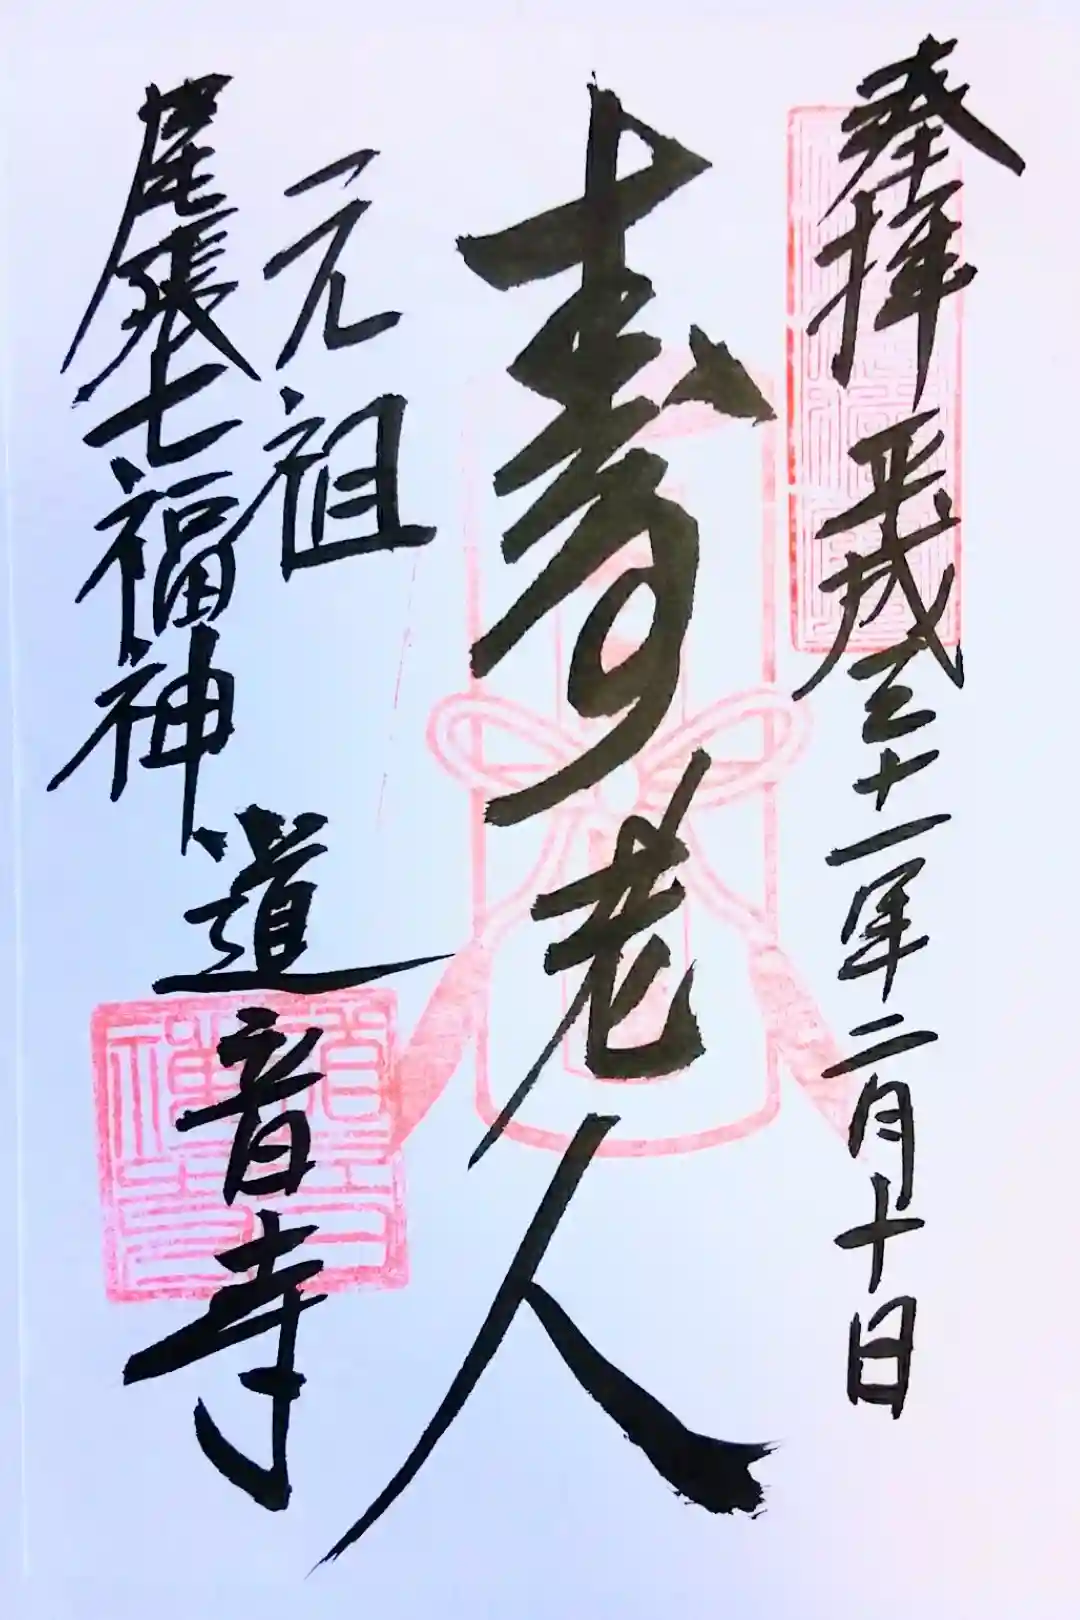 奉拝 平成三十一年二月十日
寿老人
元祖
尾張七福神
道音寺